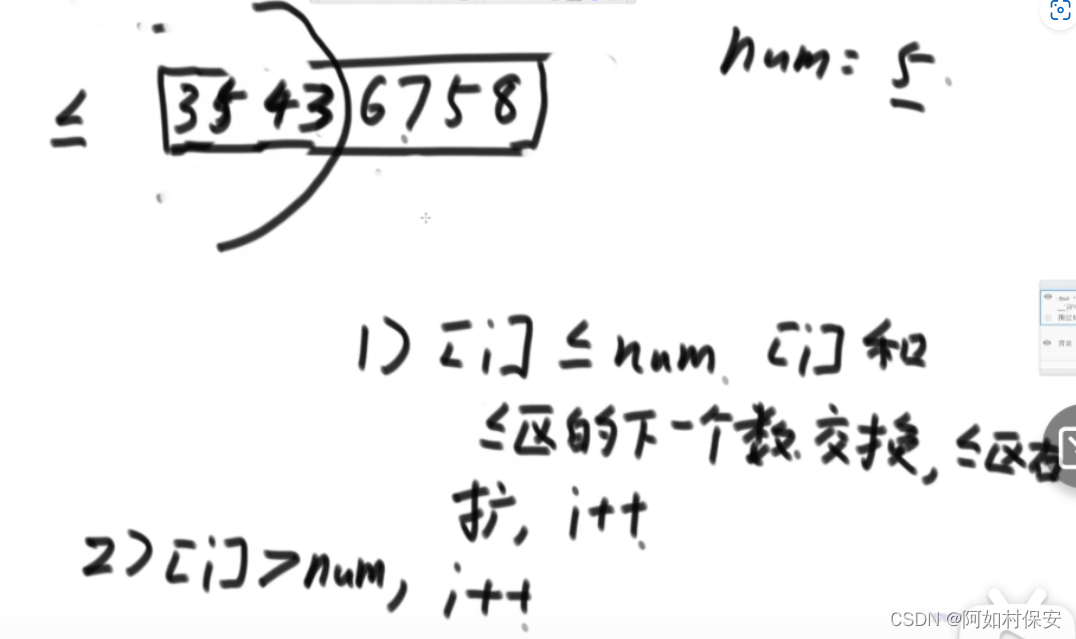 num = 5
≤ 3 5 4 3 6 7 5 8
1) [i] ≤ num, [i] 和
≤区的下一个数交换, ≤区右
扩, i++
2) [i] > num, i++
CSDN @阿如村保安